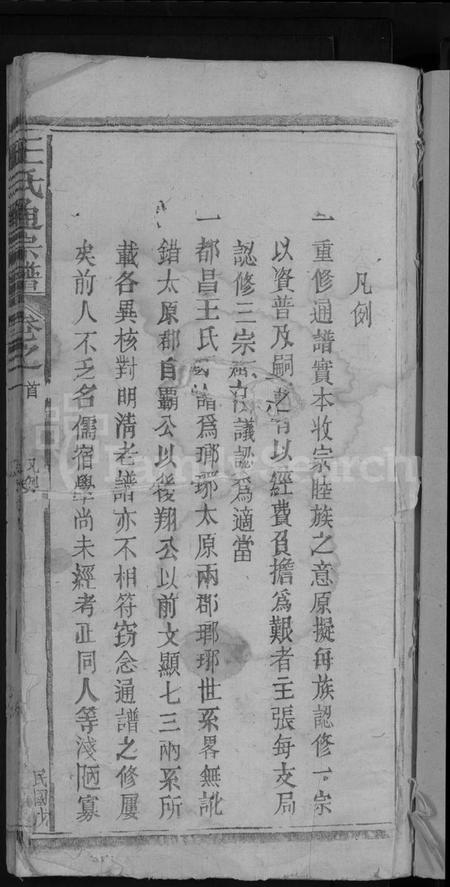 凡例
一重修通譜實本收宗睦族之意原擬每族認修一宗
以資普及嗣有以經費負擔爲艱者主張每支局
認修三宗議認爲適當
一都昌王氏譜爲瑯琊太原兩郡瑯琊世系畧無訛
錯太原郡自霸公以後翔公以前文顯七三兩系所
載各異核對明清老譜亦不相符竊念通譜之修屢
矣前人不乏名儒宿學尚未經考正同人等淺陋寡
王氏通宗譜 卷之一 首 凡例
民國
FamilySearch